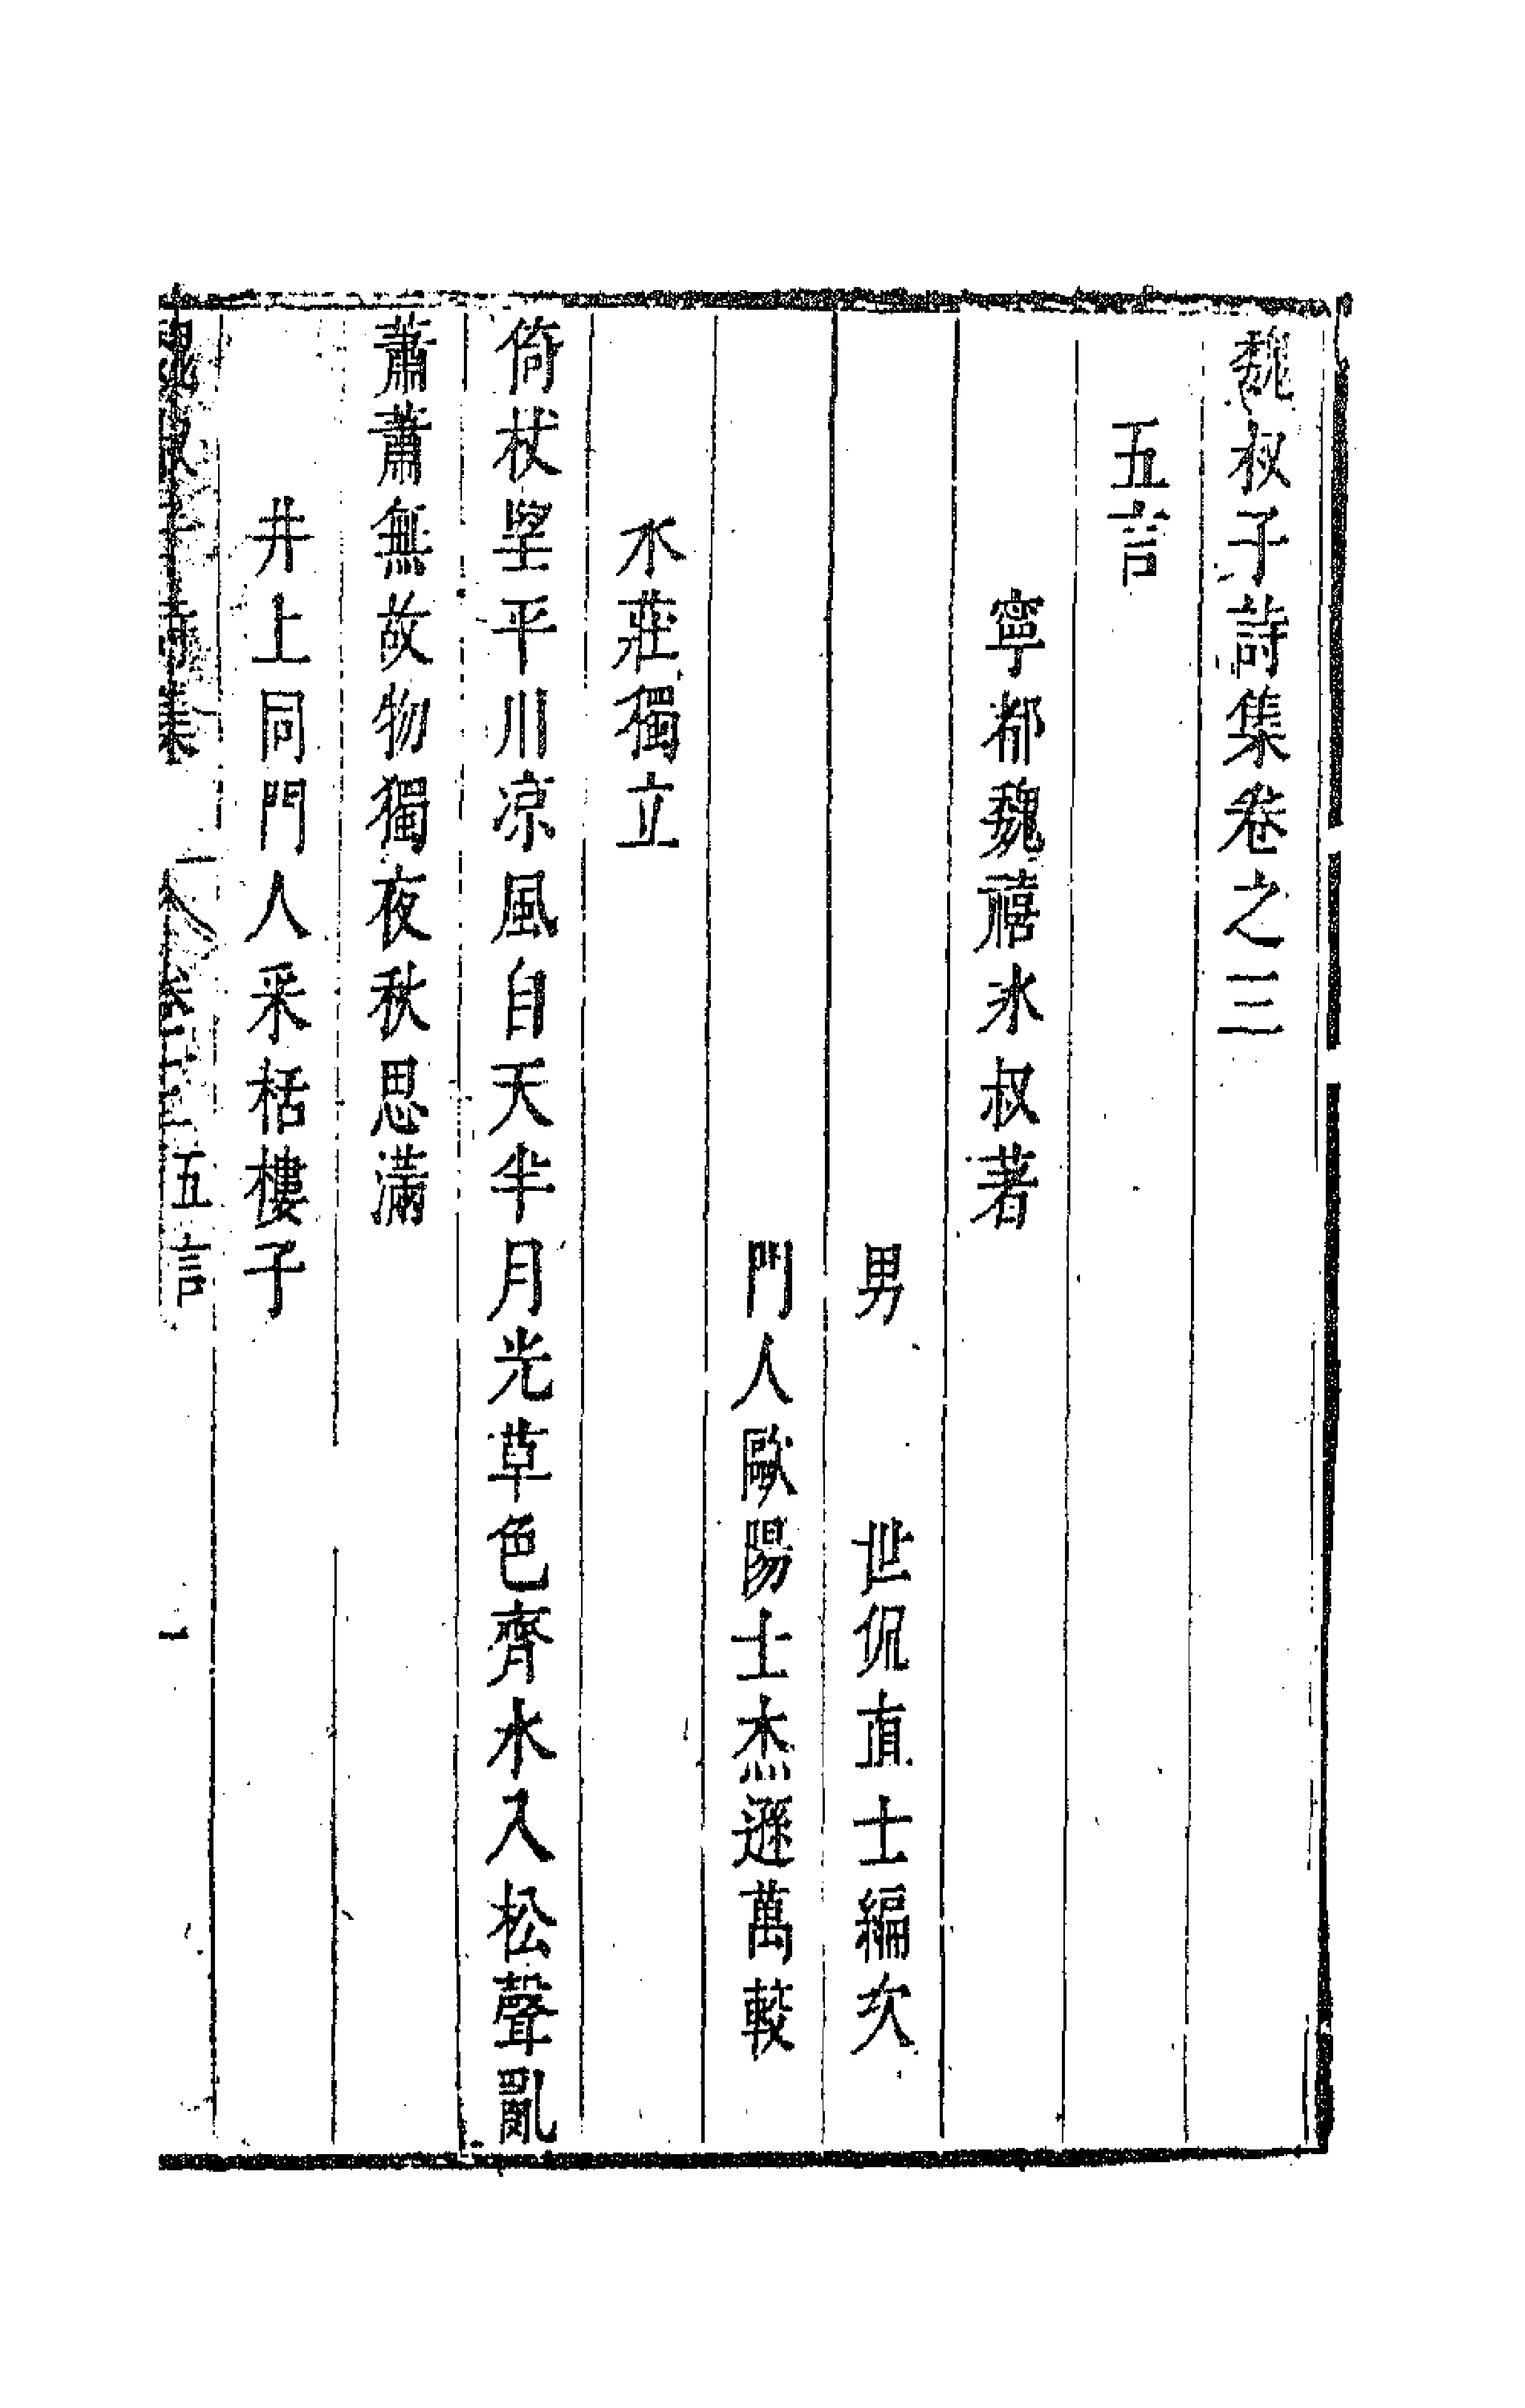 魏叔子詩集卷之三
五言
寧都魏禧氷叔著
男 世侃直士編次
門人歐陽士杰遜萬較
水莊獨立
倚杖望平川凉風自天半月光草色齊水入松聲亂
蕭蕭無故物獨夜秋思滿
井上同門人釆栝樓子
魏叔子詩集 卷之三 五言 一